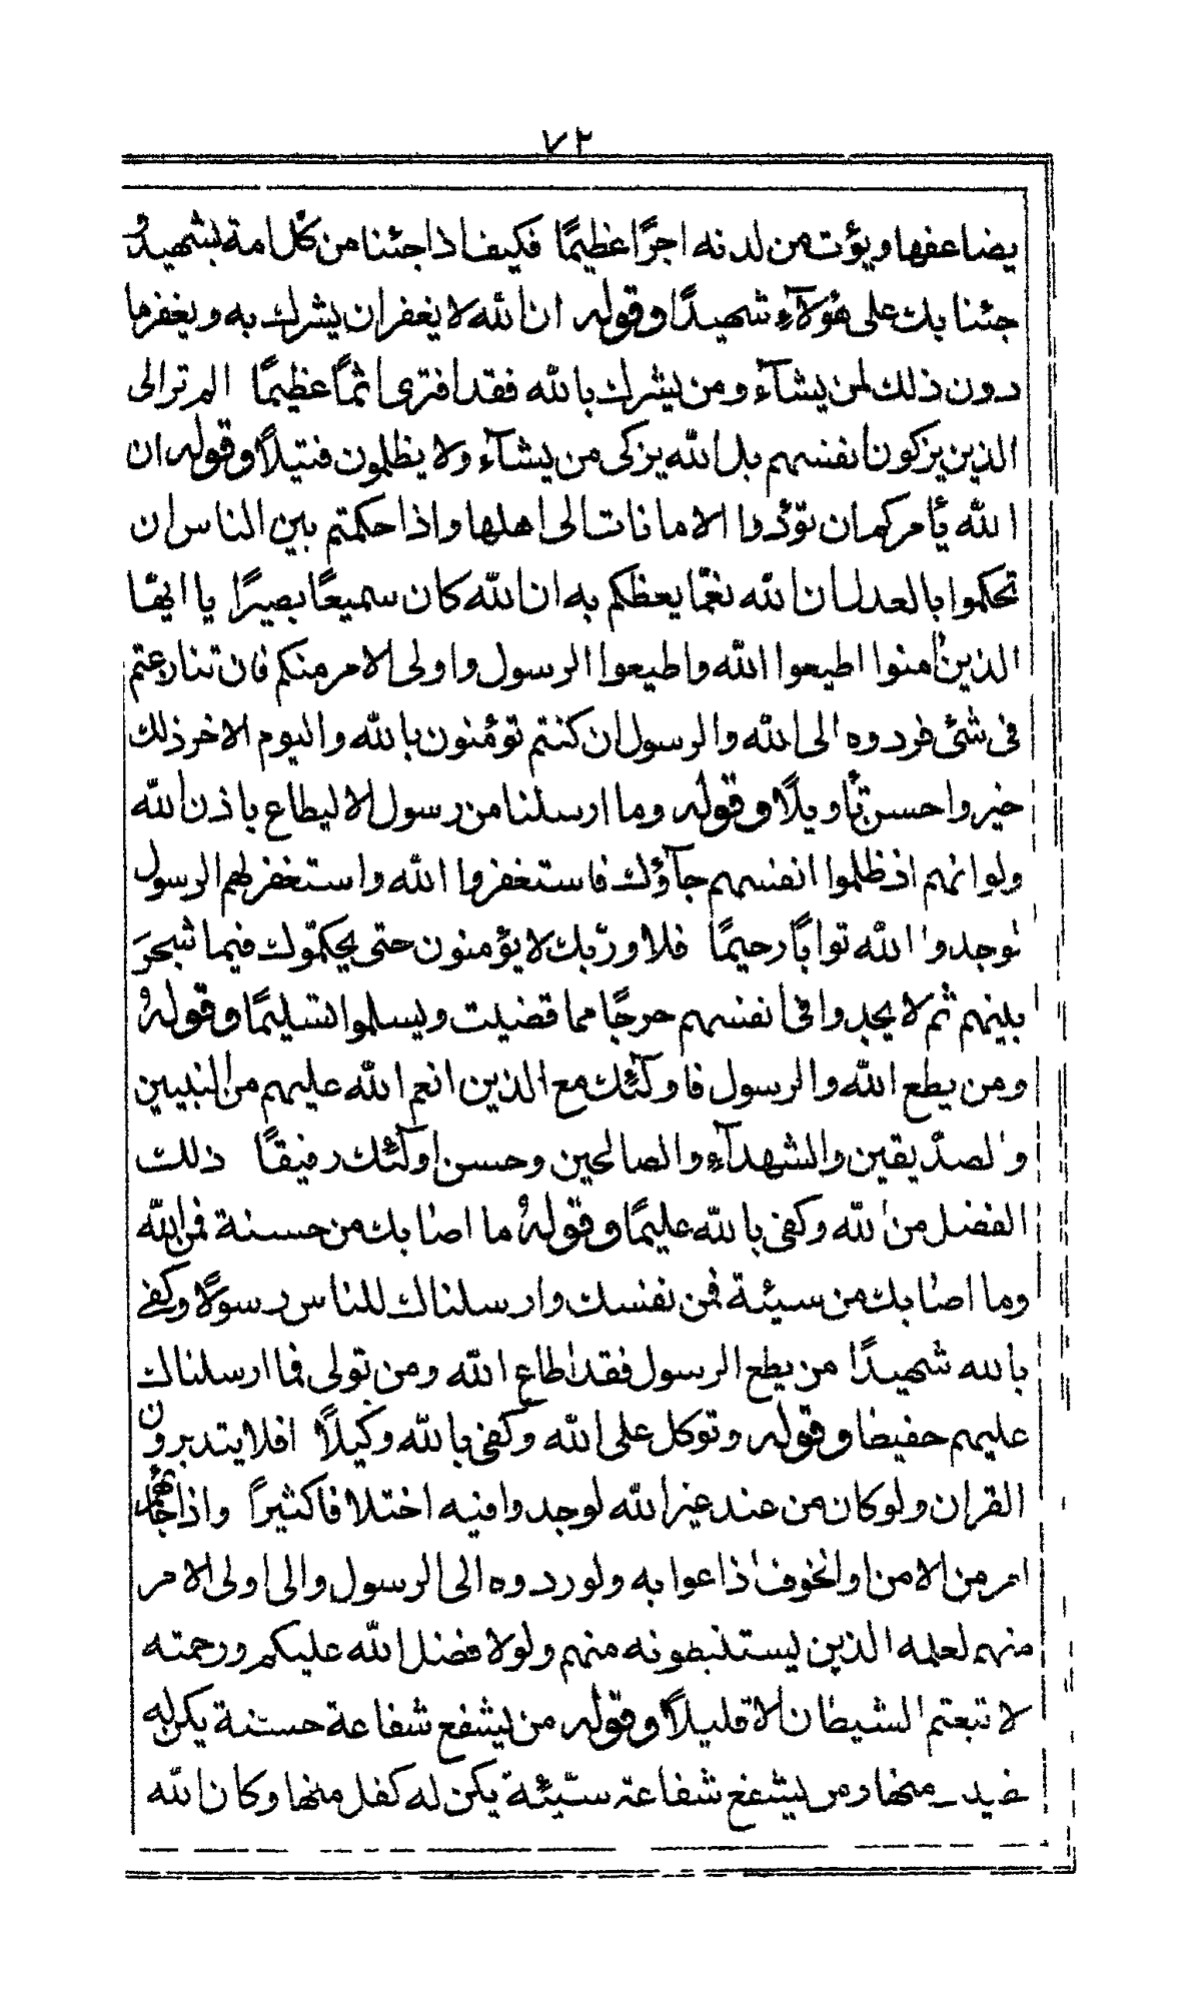 ٧٢
يضاعفها ويؤت من لدنه اجرًا عظيمًا فكيف اذا جئنا من كلّ امة بشهيد و
جئنا بك على هٰؤلآء شهيدًا وقوله ان الله لا يغفر ان يشرك به ويغفر ما
دون ذلك لمن يشآء ومن يشرك بالله فقد افترى اثمًا عظيمًا الم تر الى
الذين يزكون انفسهم بل الله يزكى من يشآء ولا يظلمون فتيلًا وقوله ان
الله يأمركم ان تؤدوا الامانات الى اهلها واذا حكمتم بين الناس ان
تحكموا بالعدل ان الله نعمّا يعظكم به ان الله كان سميعًا بصيرًا يا ايها
الذين اٰمنوا اطيعوا الله واطيعوا الرسول واولى الامر منكم فان تنازعتم
فى شئ فردوه الى الله والرسول ان كنتم تؤمنون بالله واليوم الاخر ذلك
خير واحسن تأويلًا وقوله وما ارسلنا من رسول الا ليطاع باذن الله
ولو انهم اذ ظلموا انفسهم جآؤك فاستغفروا الله واستغفر لهم الرسول
لوجدوا الله توابًا رحيمًا فلا وربّك لا يؤمنون حتى يحكمّوك فيما شجرَ
بينهم ثم لا يجدوا فى انفسهم حرجًا مما قضيت ويسلموا تسليمًا وقولهُ
ومن يطع الله والرسول فاولٰئك مع الذين انعم الله عليهم من النبيين
والصدّيقين والشهدآء والصالحين وحسن اولٰئك رفيقًا ذلك
الفضل من الله وكفى بالله عليمًا وقولهُ ما اصابك من حسنة فمن الله
وما اصابك من سيئة فمن نفسك وارسلناك للناس رسولًا وكفى
بالله شهيدًا من يطع الرسول فقد اطاع الله ومن تولى فما ارسلناك
عليهم حفيظا وقوله وتوكل على الله وكفى بالله وكيلًا افلا يتدبرون
القران ولو كان من عند غير الله لوجدوا فيه اختلافا كثيرًا واذا جآءهم
امر من الامن او الخوف اذاعوا به ولو ردوه الى الرسول والى اولى الامر
منهم لعلمه الذين يستنبطونه منهم ولولا فضل الله عليكم ورحمته
لا تبعتم الشيطان الا قليلًا وقوله من يشفع شفاعة حسنة يكن له
نصيب منها ومن يشفع شفاعة سيّئة يكن له كفل منها وكان الله